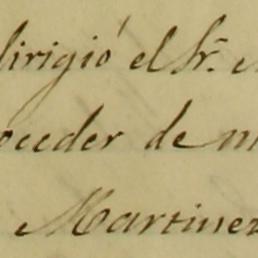 dirigió el Sr.
oceder de m
Martinez